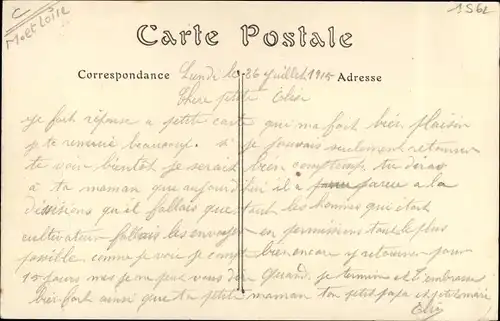 C
M. et Loire
1562
Carte Postale
Correspondance
Adresse
Lundi le 26 juillet 1915
Chere petite Elise
Je fait réponse a petite carte qui ma fait bien plaisir
je te remerie beaucoup. si je pouvais seulement retourner
te voir bientôt je serait bien comptemps, tu diras
à ta maman que aujourd'hui il a parue a la
dissisions qu'il fallais que tout les hommes qui était
cultivateur fallais les envoyer en permissions tout le plus
possible. comme je voie je compte bien encore y retourner pour
15 jours mes je ne peut vous dir Quand. je termine et t'embrasse
bien fort ainsi que ta petite maman ton petit papa